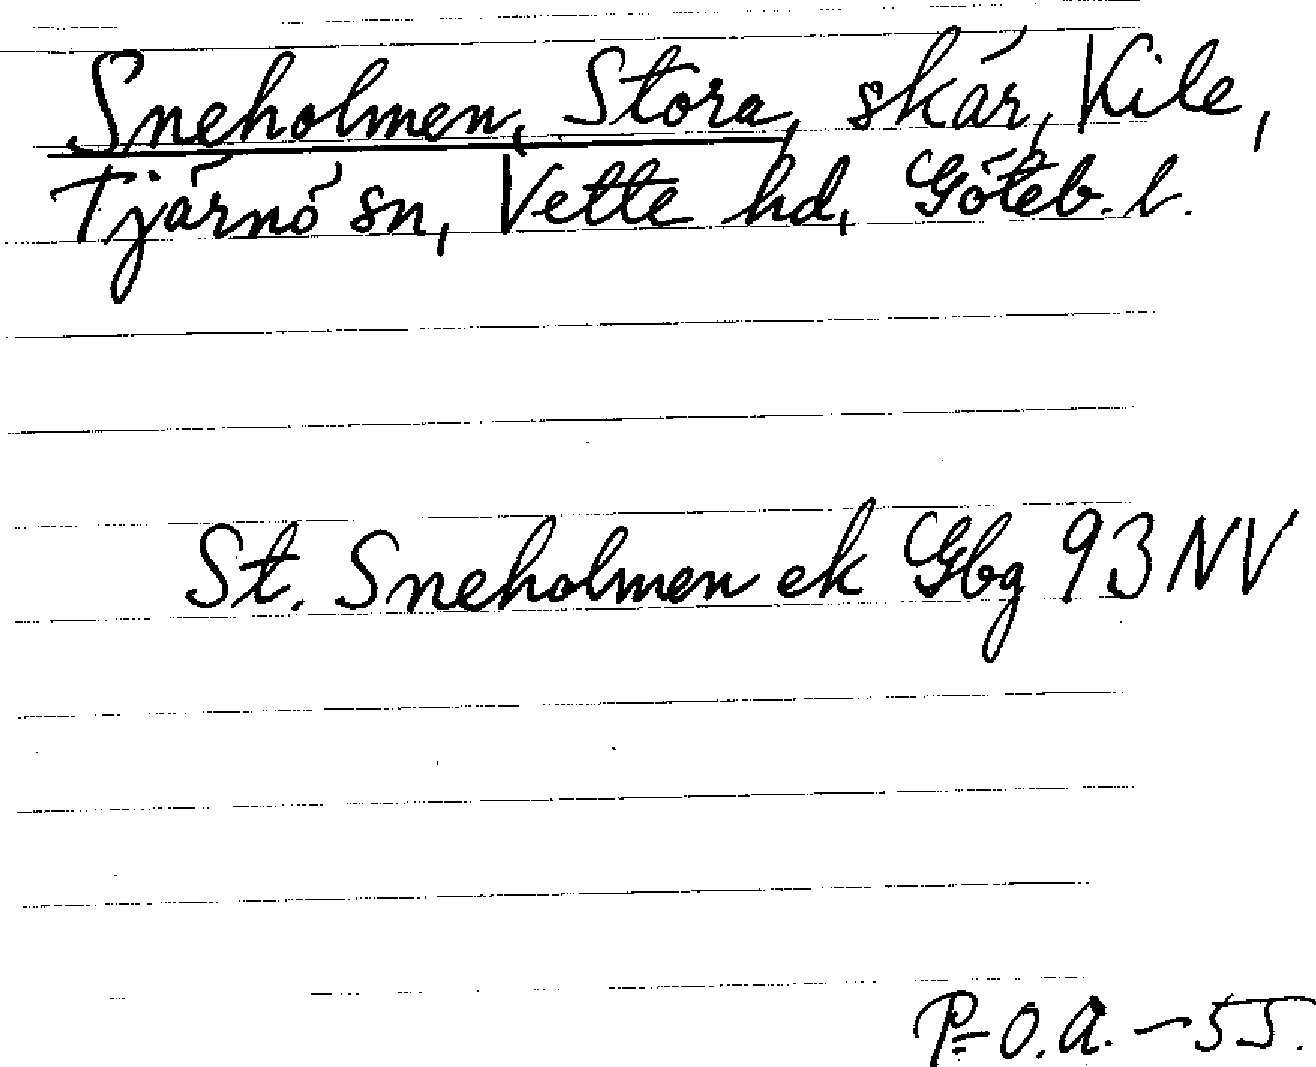 Sneholmen, Stora, skär, Kile,
Tjärnö sn, Vette hd, Göteb. l.
St. Sneholmen ek Gbg 93 NV
P-O.A. - 55.